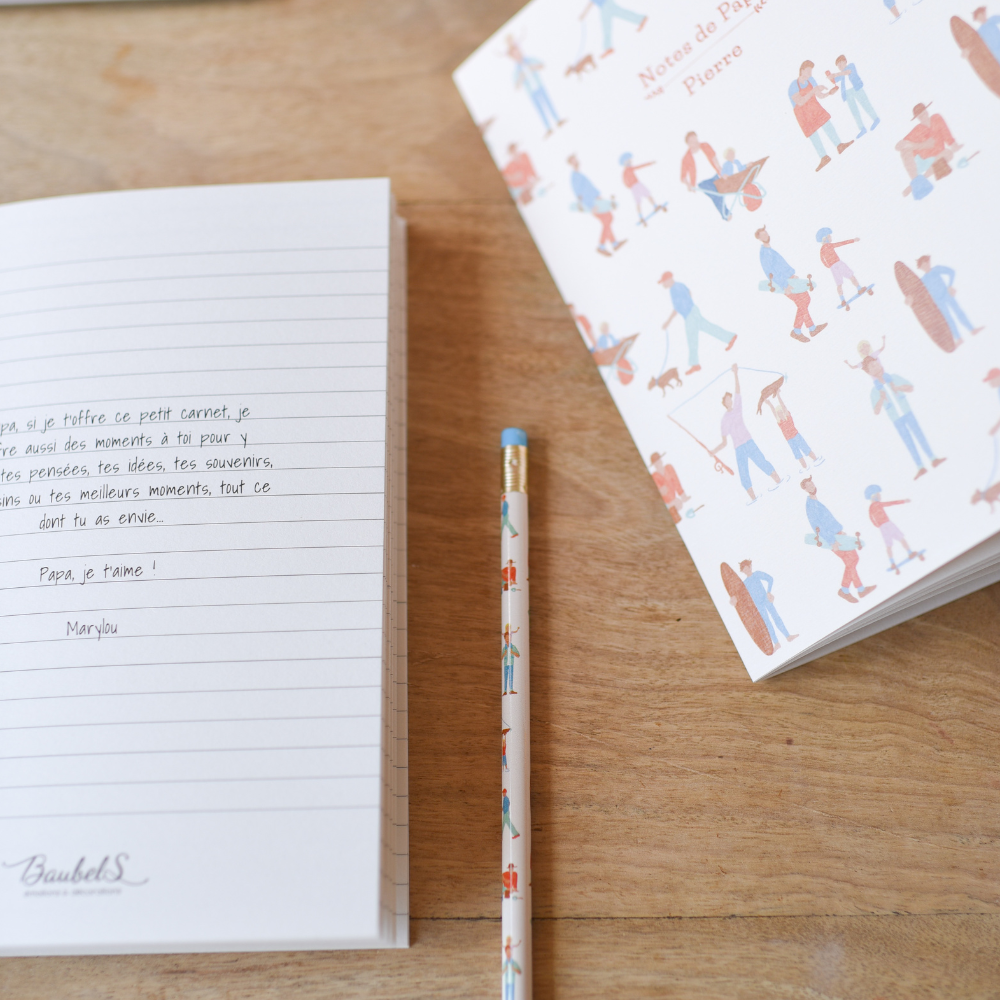 Notes de Pap
Pierre
pa, si je t'offre ce petit carnet, je
fre aussi des moments à toi pour y
tes pensées, tes idées, tes souvenirs,
ins ou tes meilleurs moments, tout ce
dont tu as envie...
Papa, je t'aime !
Marylou
BaubelS